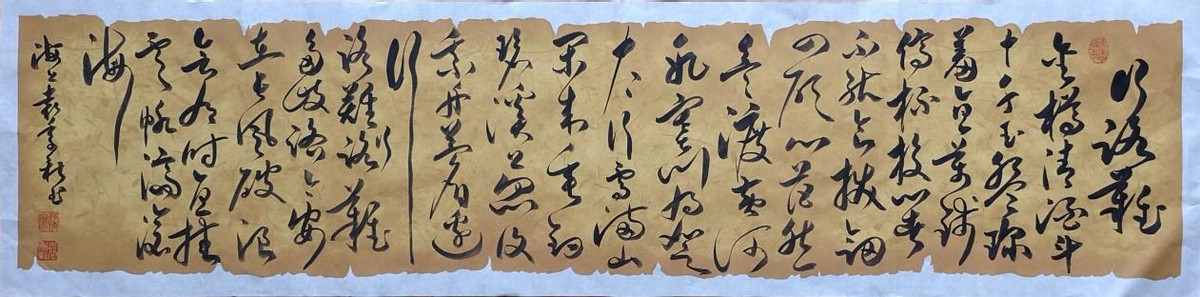 行路難
金樽清酒斗
十千玉盤珍
羞直萬錢
停杯投箸
不能食拔劍
四顧心茫然
欲渡黃河
冰塞川將登
太行雪滿山
閒來垂釣
碧溪上忽復
乘舟夢日邊
行
路難行路難
多歧路今安
在長風破浪
會有時直掛
雲帆濟滄
海
海上